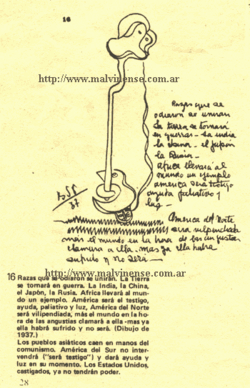 16
http://www.malvinense.com.ar
Razas que se
odiaron se unirán
La tierra se tornará
en guerras - la india
la china - el japón
la Rusia -
africa llevará al
mundo un ejemplo
america será testigo
ayuda paliativo y
luz -
America del Norte
será vilipendiada
mas el mundo en la hora de las angustias
clamará a ella - mas ya ella habrá
sufrido y no será -
BSP
37
http://www.malvinense.com.ar
16 Razas que se odiaron se unirán. La Tierra
se tornará en guerra. La India, la China,
el Japón, la Rusia. Africa llevará al mun-
do un ejemplo. América será el testigo,
ayuda, paliativo y luz, América del Norte
será vilipendiada, más el mundo en la ho-
ra de las angustias clamará a ella -mas ya
ella habrá sufrido y no será. (Dibujo de
1937.)
Los pueblos asiáticos caen en manos del
comunismo. América del Sur no inter-
vendrá ("será testigo") y dará ayuda y
luz en su momento. Los Estados Unidos,
castigados, ya no tendrán poder.
28